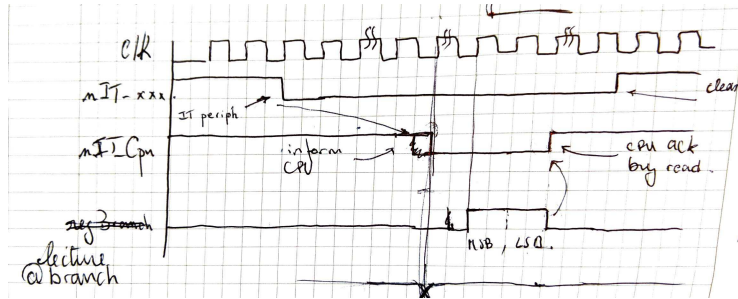 ClK
nIT-xxx.
IT periph
clear
nIT_Cpu
inform
CPU
cpu ack
by read.
regBranch
MSB, LSB.
lecture
@branch